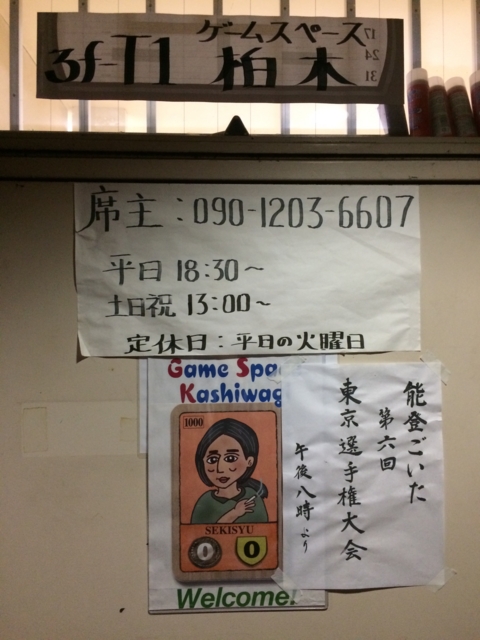 ゲームスペース
3f-T1 柏木
17
24
31
席主:090-1203-6607
平日 18:30~
土日祝 13:00~
定休日:平日の火曜日
Game Spa
Kashiwag
1000
SEKISYU
0 0
Welcome!
能登ごいた
第六回
東京選手権大会
午後八時より